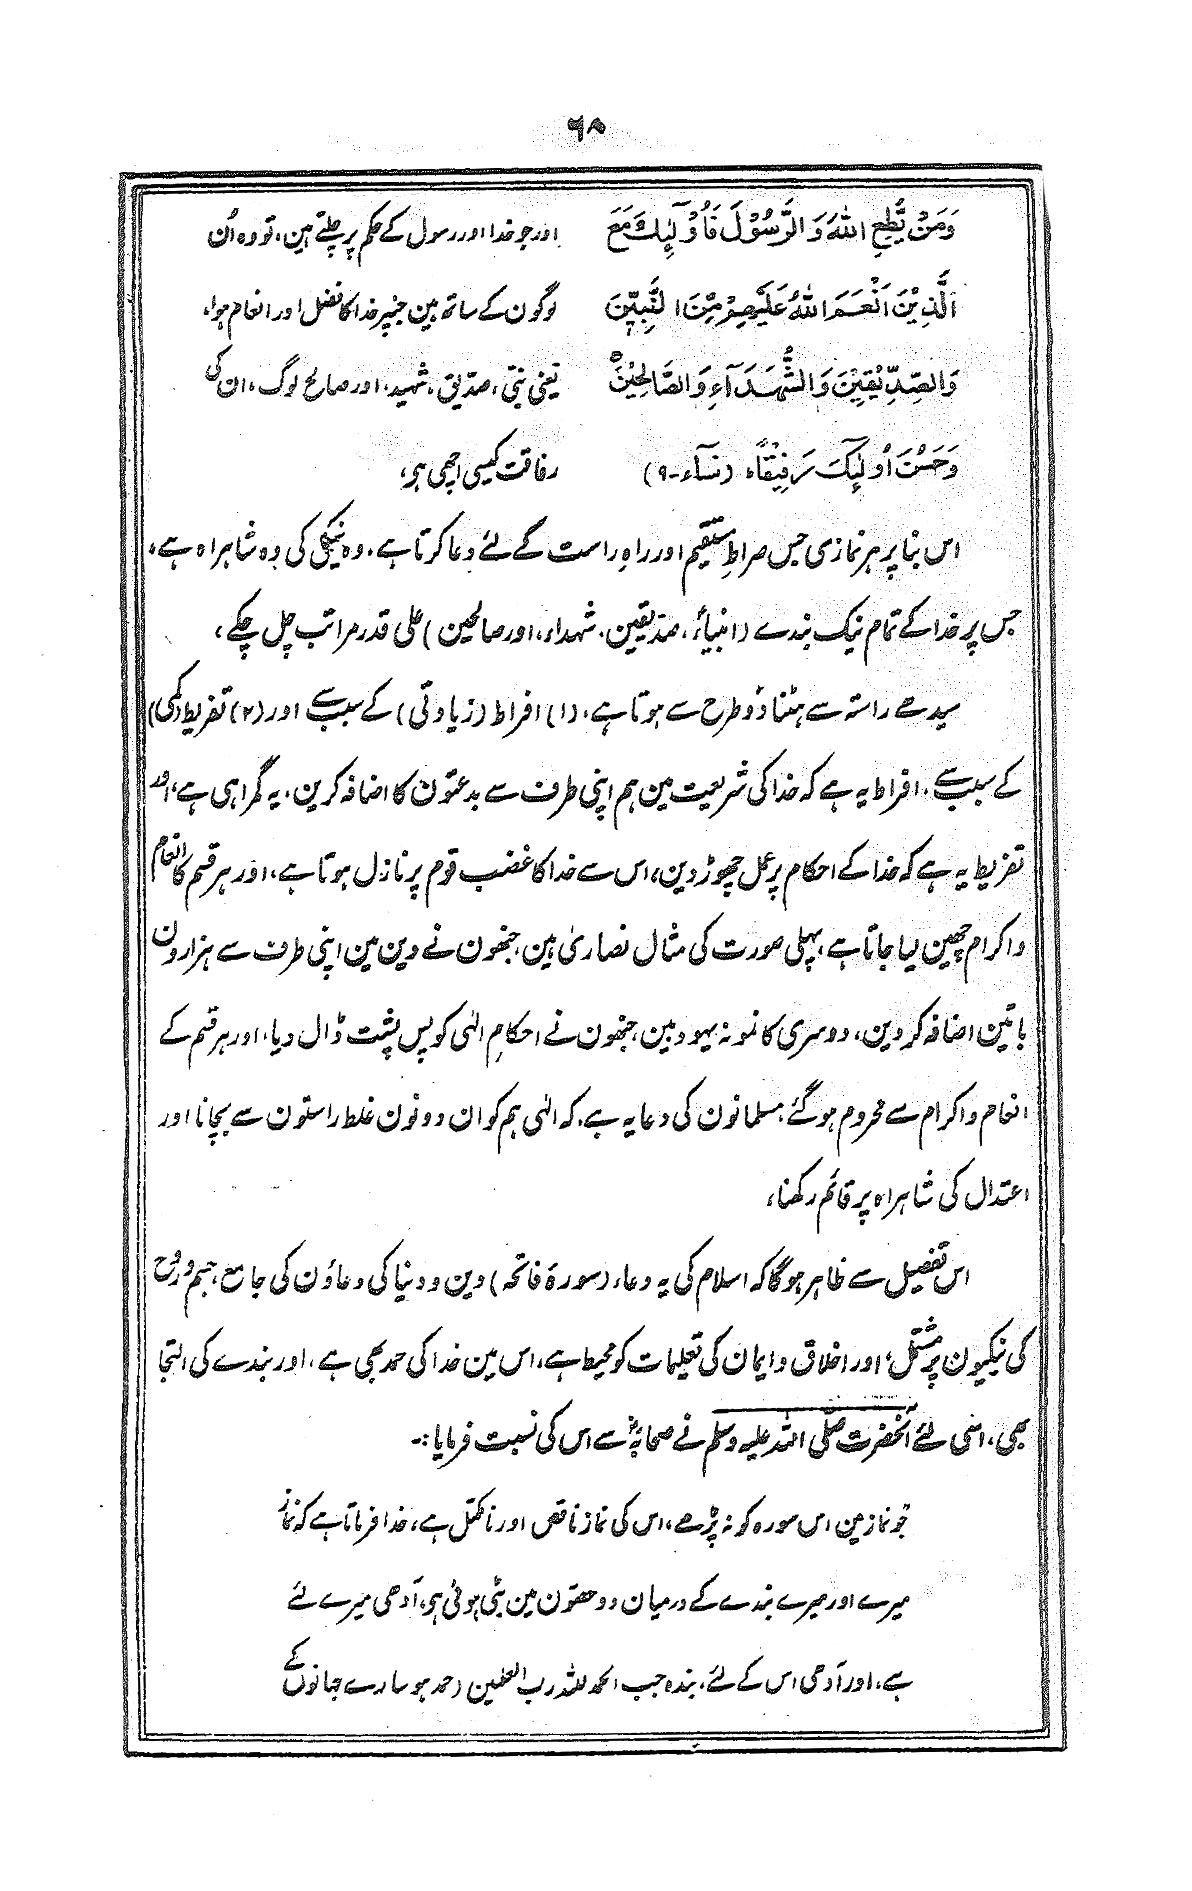 ۶۸
وَمَنْ يُّطِعِ اللهَ وَالرَّسُوْلَ فَاُوْلٰٓئِكَ مَعَ اور جو خدا اور رسول کے حکم پر چلتے ہین، تو وہ اُن
الَّذِيْنَ اَنْعَمَ اللهُ عَلَيْهِمْ مِّنَ النَّبِيّٖنَ لوگون کے ساتھ ہین جنپر خدا کا فضل اور انعام ہوا،
وَالصِّدِّيْقِيْنَ وَالشُّهَدَآءِ وَالصَّالِحِيْنَ یعنی نبی، صدیق، شہید، اور صالح لوگ، ان کی
وَحَسُنَ اُولٰٓئِكَ رَفِيْقًاه (نساء-۹) رفاقت کیسی اچھی ہی،
اس بنا پر ہر نمازی جس صراطِ مستقیم اور راہِ راست کے لئے دعا کرتا ہے، وہ نیکی کی وہ شاہراہ ہے،
جس پر خدا کے تمام نیک بندے (انبیاءؑ، صدیقین، شہداء، اور صالحین) علی قدر مراتب چل چکے،
سیدھے راستہ سے ہٹنا دو طرح سے ہوتا ہے، (۱) افراط (زیادتی) کے سبب سے اور (۲) تفریط (کمی)
کے سبب سے، افراط یہ ہے کہ خدا کی شریعت مین ہم اپنی طرف سے بدعتون کا اضافہ کرین، یہ گمراہی ہے، اور
تفریط یہ ہے کہ خدا کے احکام پر عمل چھوڑ دین، اس سے خدا کا غضب قوم پر نازل ہوتا ہے، اور ہر قسم کا انعام
و اکرام چھین لیا جاتا ہے، پہلی صورت کی مثال نصاریٰ ہین، جنھون نے دین مین اپنی طرف سے ہزارون
باتین اضافہ کر دین، دوسری کا نمونہ یہود ہین، جنھون نے احکامِ الٰہی کو پس پشت ڈال دیا، اور ہر قسم کے
انعام و اکرام سے محروم ہو گئے، مسلمانون کی دعا یہ ہے، کہ الٰہی ہم کو ان دونون غلط راستون سے بچانا اور
اعتدال کی شاہراہ پر قائم رکھنا،
اس تفصیل سے ظاہر ہو گا کہ اسلام کی یہ دعاء (سورۂ فاتحہ) دین و دنیا کی دعاؤن کی جامع، جسم و روح
کی نیکیون پر مشتمل، اور اخلاق و ایمان کی تعلیمات کو محیط ہے، اس مین خدا کی حمد بھی ہے، اور بندے کی التجا
بھی، اسی لئے آنحضرت صلّی اللہ علیہ وسلم نے صحابہؓ سے اس کی نسبت فرمایا:-
جو نماز مین اس سورہ کو نہ پڑھے، اس کی نماز ناقص اور نامکمل ہے، خدا فرماتا ہے کہ نماز
میرے اور میرے بندے کے درمیان دو حصّون مین بٹی ہوئی ہی، آدھی میرے لئے
ہے، اور آدھی اس کے لئے، بندہ جب الحمد للہ رب العلمین (حمد ہو سارے جہانون کے